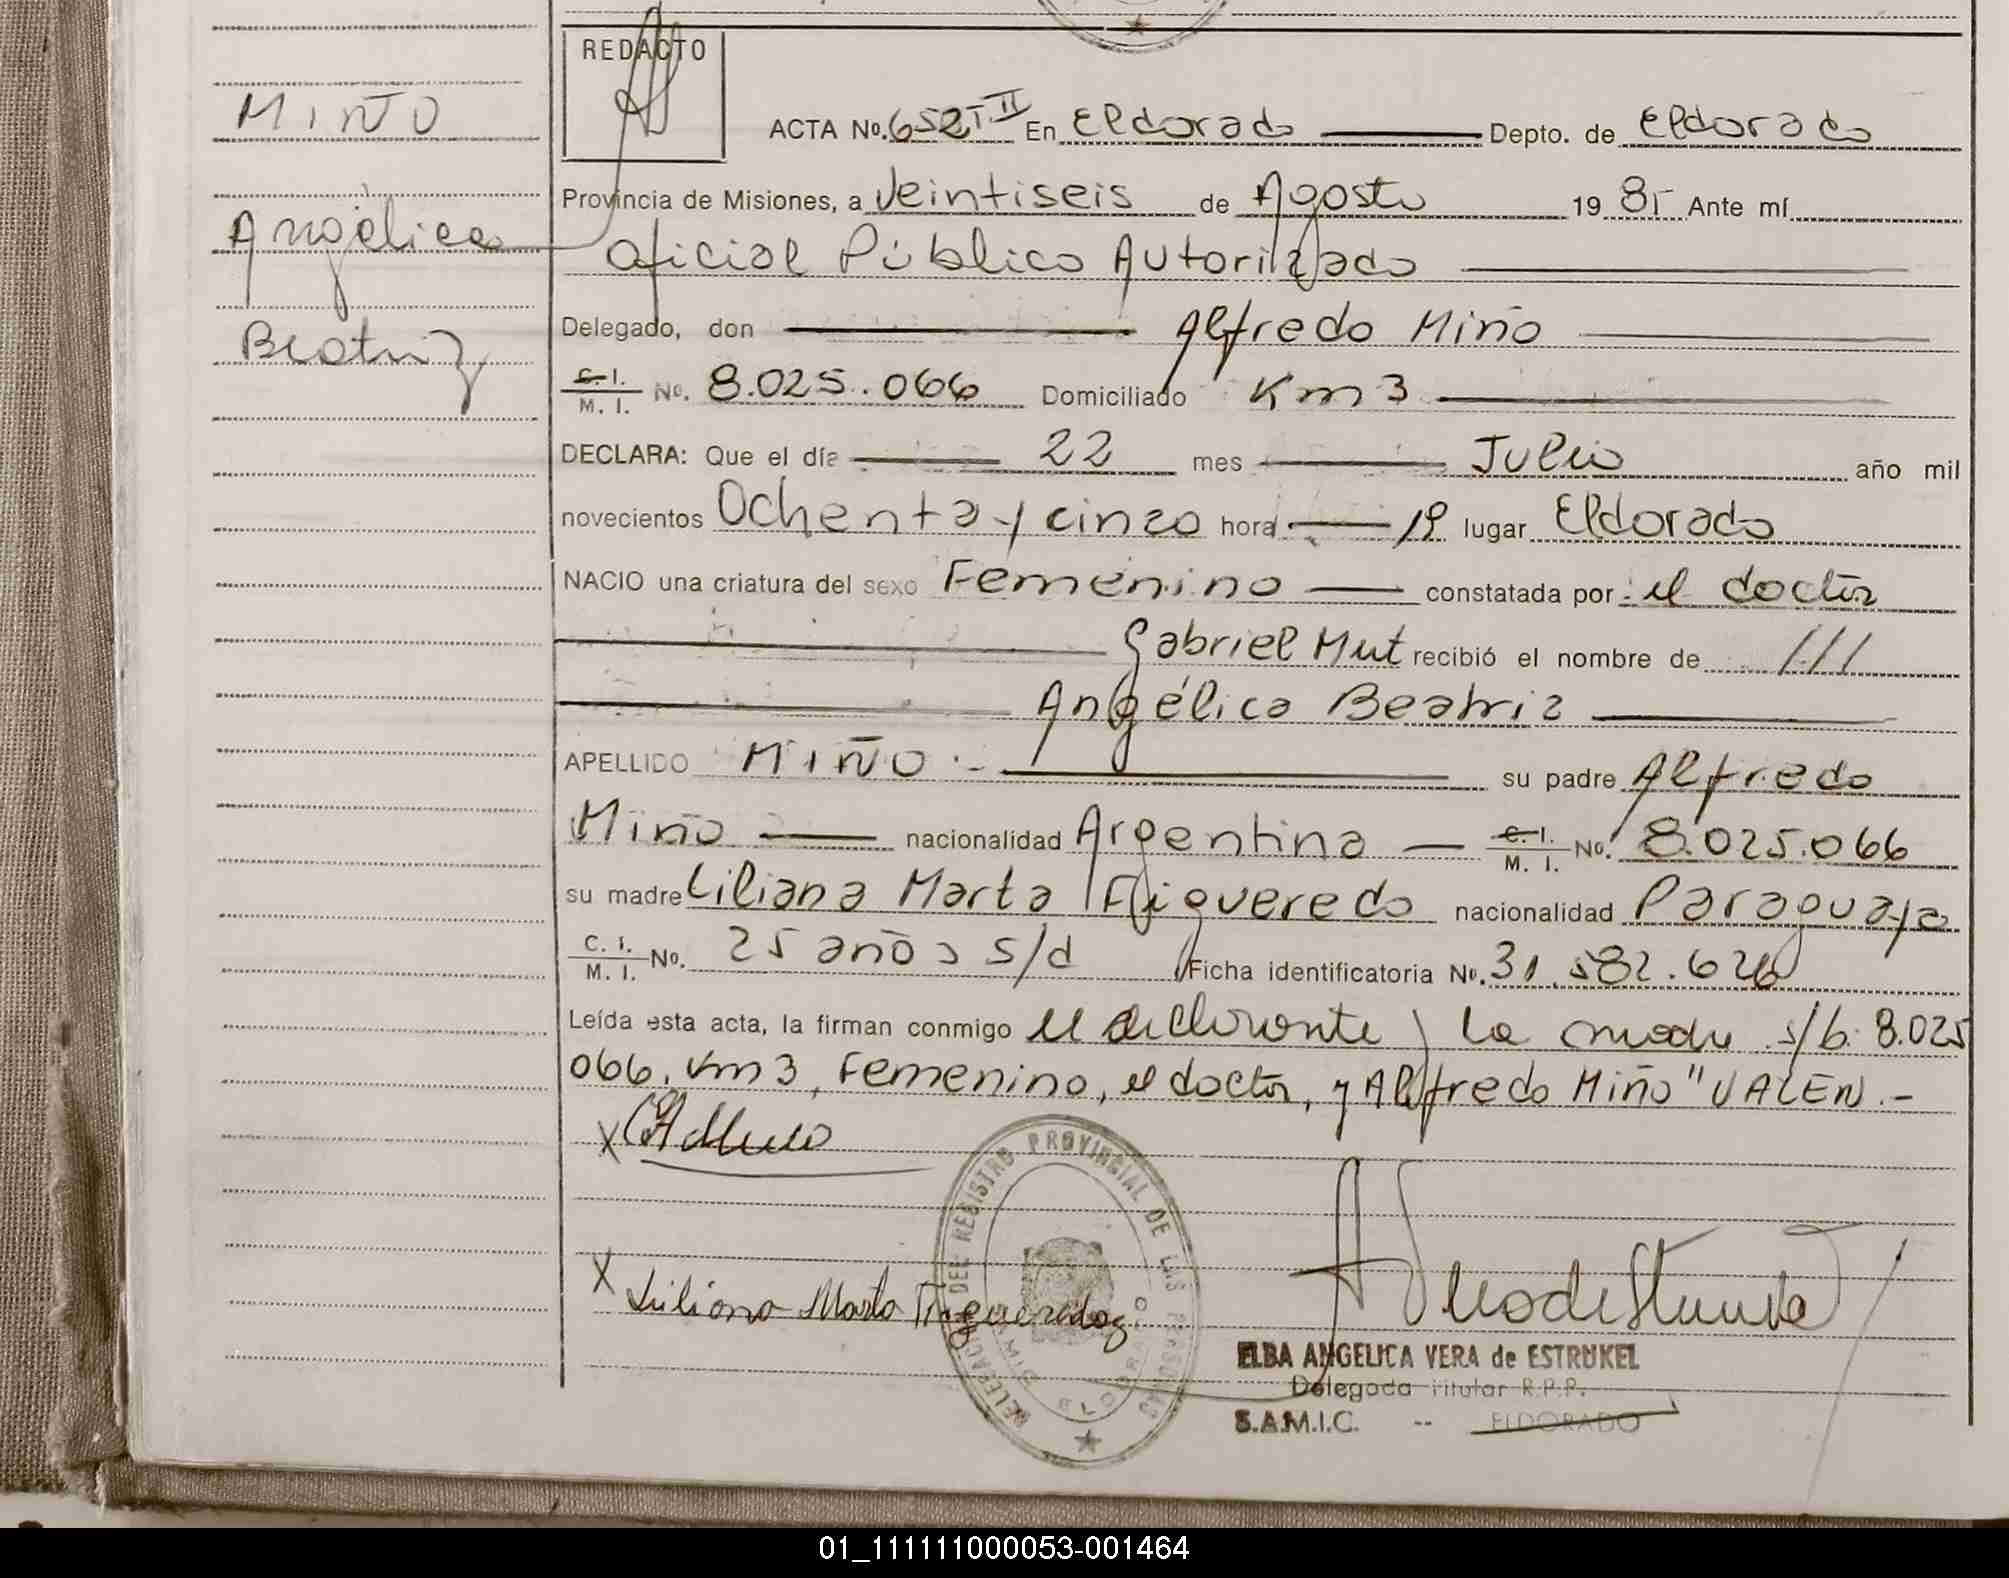 REDACTO
MIÑO
Angélica
Beatriz
ACTA No. 652 T II En Eldorado Depto. de Eldorado
Provincia de Misiones, a Veintiseis de Agosto 19 85 Ante mí
Oficial Público Autorizado
Delegado, don Alfredo Miño
C. I. / M. I. No. 8.025.066 Domiciliado Km 3
DECLARA: Que el día 22 mes Julio año mil
novecientos Ochenta y cinco hora 19 lugar Eldorado
NACIO una criatura del sexo Femenino constatada por el doctor
Gabriel Mut recibió el nombre de ///
Angélica Beatriz
APELLIDO MIÑO.- su padre Alfredo
Miño nacionalidad Argentina C. I. / M. I. No. 8.025.066
su madre Liliana Marta Figueredo nacionalidad Paraguaya
C. I. / M. I. No. 25 años s/d Ficha identificatoria No. 31.582.626
Leída esta acta, la firman conmigo el declarante y la madre s/b: 8.025
066, Km 3, Femenino, el doctor, y Alfredo Miño" VALEN.-
X
X Liliana Marta
DELEGACION DEL REGISTRO PROVINCIAL DE LAS PERSONAS
ELDORADO
ELBA ANGELICA VERA de ESTRUKEL
Delegada Titular R.P.P.
S.A.M.I.C. -- ELDORADO
01_111111000053-001464